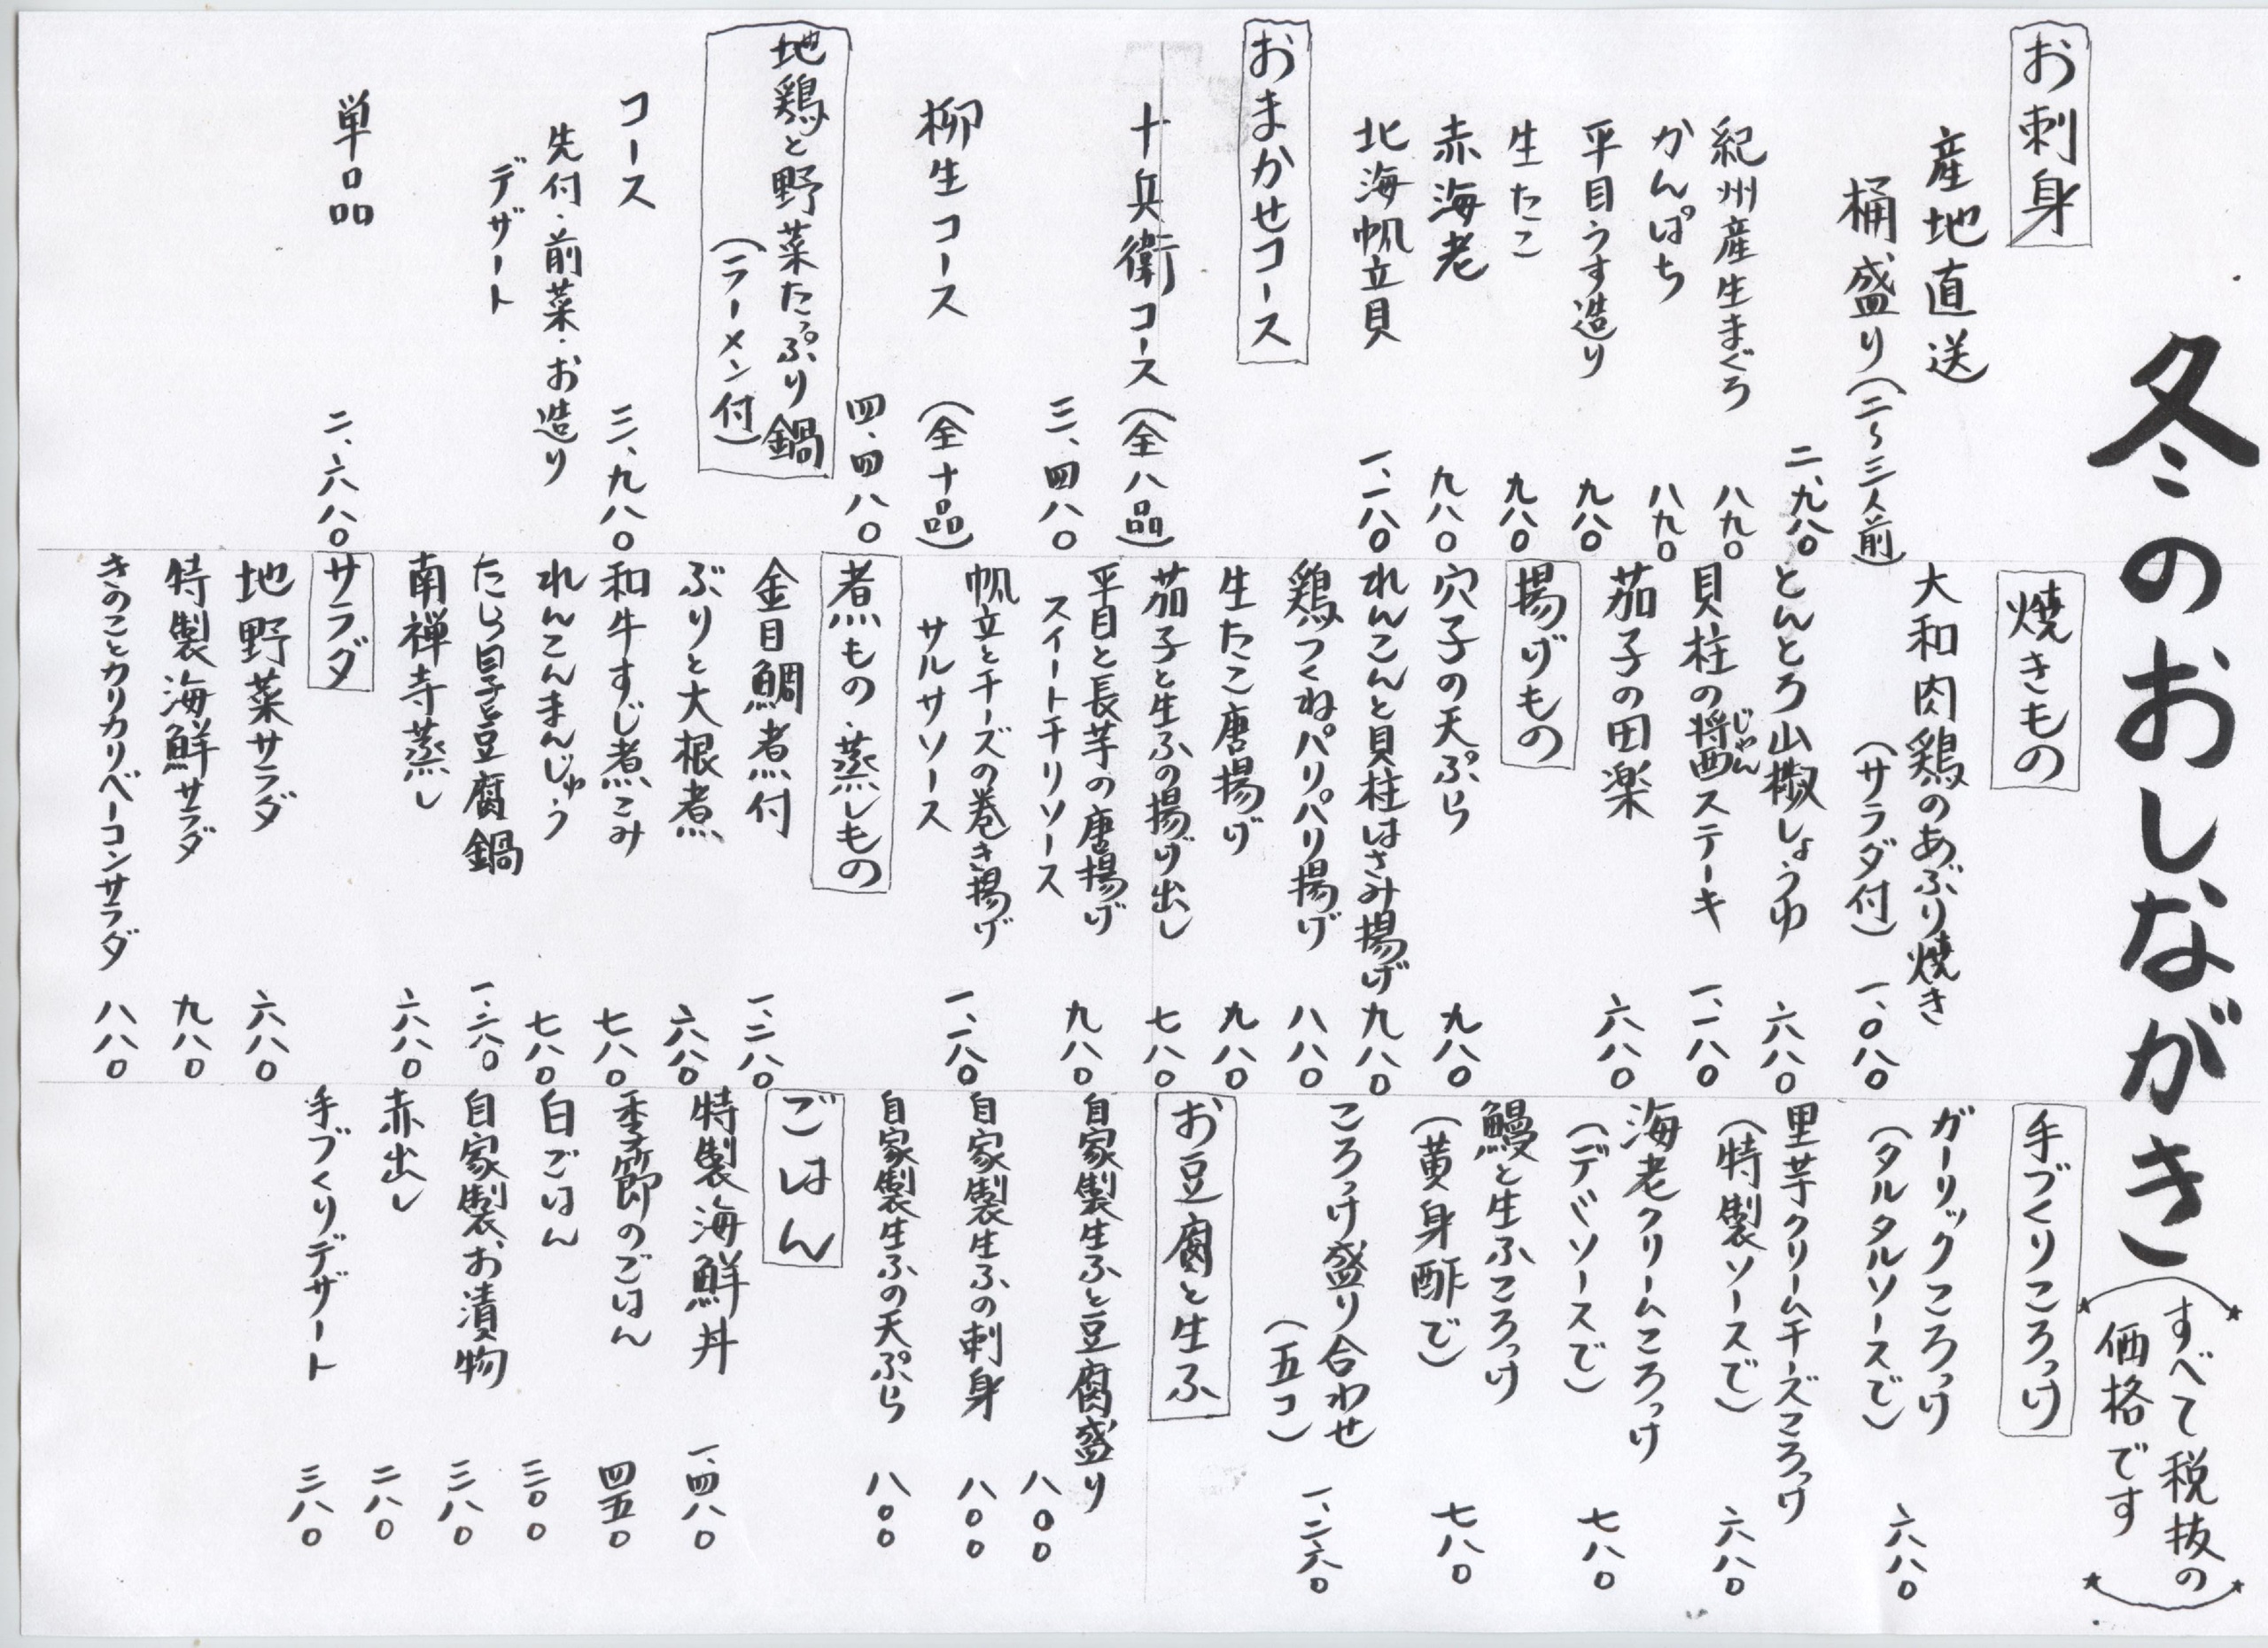 冬のおしながき
(すべて税抜の
価格です)
お刺身
産地直送
桶盛り(二〜三人前)
二、九八〇
紀州産生まぐろ 八九〇
かんぱち 八九〇
平目うす造り 九八〇
生たこ 九八〇
赤海老 九八〇
北海帆立貝 一、一八〇
おまかせコース
十兵衛コース(全八品)
三、四八〇
柳生コース(全十品)
四、四八〇
地鶏と野菜たっぷり鍋
(ラーメン付)
コース 三、九八〇
先付・前菜・お造り
デザート
単品 二、六八〇
焼きもの
大和肉鶏のあぶり焼き
(サラダ付) 一、〇八〇
とんとろ山椒しょうゆ 六八〇
貝柱の醤ステーキ 一、一八〇
じゃん
茄子の田楽 六八〇
揚げもの
穴子の天ぷら 九八〇
れんこんと貝柱はさみ揚げ 九八〇
鶏つくねパリパリ揚げ 八八〇
生たこ唐揚げ 九八〇
茄子と生ふの揚げ出し 七八〇
平目と長芋の唐揚げ 九八〇
スイートチリソース
帆立とチーズの巻き揚げ 一、一八〇
サルサソース
煮もの・蒸しもの
金目鯛煮付 一、二八〇
ぶりと大根煮 六八〇
和牛すじ煮こみ 七八〇
れんこんまんじゅう 七八〇
たら白子豆腐鍋 一、二八〇
南禅寺蒸し 六八〇
サラダ
地野菜サラダ 六八〇
特製海鮮サラダ 九八〇
きのことカリカリベーコンサラダ 八八〇
手づくりころっけ
ガーリックころっけ
(タルタルソースで) 六八〇
里芋クリームチーズころっけ
(特製ソースで) 六八〇
海老クリームころっけ
(デミソースで) 七八〇
鰻と生ふころっけ
(黄身酢で) 七八〇
ころっけ盛り合わせ
(五コ) 一、二六〇
お豆腐と生ふ
自家製生ふと豆腐盛り
八〇〇
自家製生ふの刺身 八〇〇
自家製生ふの天ぷら 八〇〇
ごはん
特製海鮮丼 一、四八〇
季節のごはん 四五〇
白ごはん 三〇〇
自家製お漬物 三八〇
赤出し 二八〇
手づくりデザート 三八〇